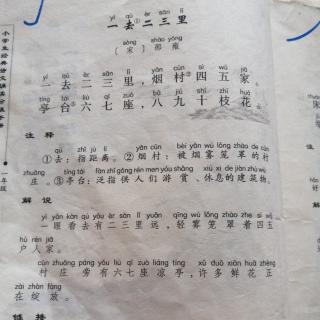 yí qù èr sān lǐ
一去二三里
sòng shào yōng
〔宋〕邵雍
yí qù èr sān lǐ yān cūn sì wǔ jiā
一去①二三里，烟村②四五家。
tíng tái liù qī zuò bā jiǔ shí zhī huā
亭台③六七座，八九十枝花。
注释
qù zhǐ jù lí yān cūn bèi yān wù lǒng zhào de cūn
①去：指距离。②烟村：被烟雾笼罩的村
zhuāng tíng tái fàn zhǐ gōng rén men yóu shǎng xiū xi de jiàn zhù wù
庄。③亭台：泛指供人们游赏、休息的建筑物。
解说
yì yǎn kàn qù yǒu èr sān lǐ yuǎn qīng wù lǒng zhào zhe sì wǔ
一眼看去有二三里远，轻雾笼罩着四五
hù rén jiā
户人家。
cūn zhuāng páng yǒu liù qī zuò liáng tíng xǔ duō xiān huā zhèng
村庄旁有六七座凉亭，许多鲜花正
zài zhàn fàng
在绽放。
链接
一年级